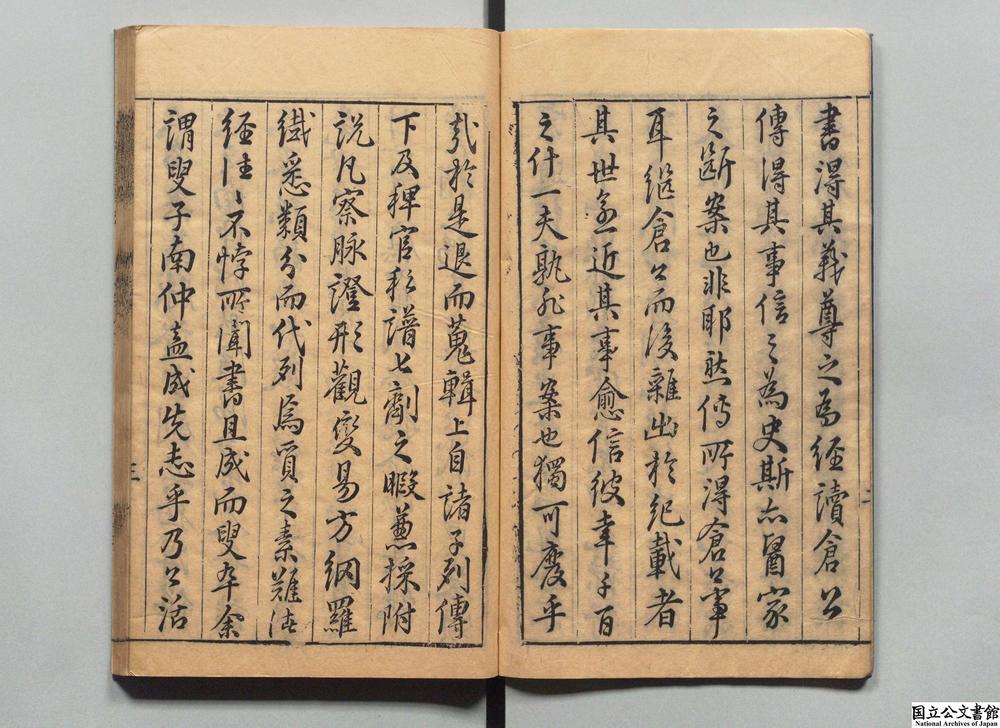 書得其義尊之為經讀倉公
傳得其事信之為史斯亦醫家
之斷案也非耶然傳所得倉公事
耳繼倉公而後雜出於紀載者
其世愈近其事愈信彼幸千百
之什一夫孰非事案也獨可廢乎
二
哉於是退而蒐輯上自諸子列傳
下及稗官私譜七劑之暇兼採附
說凡察脉證形觀變易方網羅
纖悉類分而代列焉質之素難諸
經往〻不悖所聞書且成而叟卒余
謂叟子南仲盍成先志乎乃公活
三
国立公文書館
National Archives of Japan